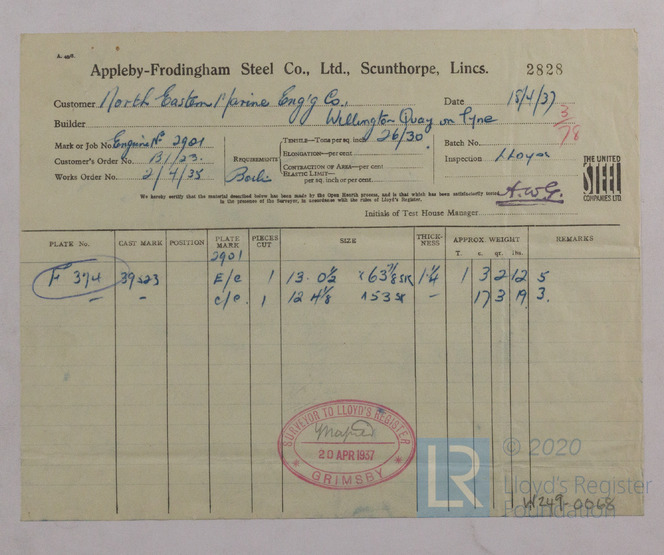 A. 498.
Appleby-Frodingham Steel Co., Ltd., Scunthorpe, Lincs. 2828
Customer North Eastern Marine Eng'g Co., Date 15/4/37
Builder Willington Quay on Tyne 3/78
Mark or Job No. Engine No 2901 TENSILE—Tons per sq. inch 26/30 Batch No.
Customer's Order No. B/123. REQUIREMENTS ELONGATION—per cent Inspection Lloyds
Works Order No. 2/4/35 Boiler CONTRACTION OF AREA—per cent
ELASTIC LIMIT—
per sq. inch or per cent.
THE UNITED
STEEL
COMPANIES LTD
We hereby certify that the material described below has been made by the Open Hearth process, and is that which has been satisfactorily tested
in the presence of the Surveyor, in accordance with the rules of Lloyd's Register.
A.W.G.
Initials of Test House Manager
PLATE No. CAST MARK POSITION PLATE MARK PIECES CUT SIZE THICKNESS APPROX. WEIGHT REMARKS
T. c. qr. lbs.
2901
F 374 39523 E/c 1 13. 0½ x 63⅞ SK 1¼ 1 3 2 12 5
— — C/c. 1 12 4⅛ x 53 SK — 17 3 19 3.
SURVEYOR TO LLOYD'S REGISTER
20 APR 1937
GRIMSBY
LR
© 2020
Lloyd's Register
Foundation
W249-0068